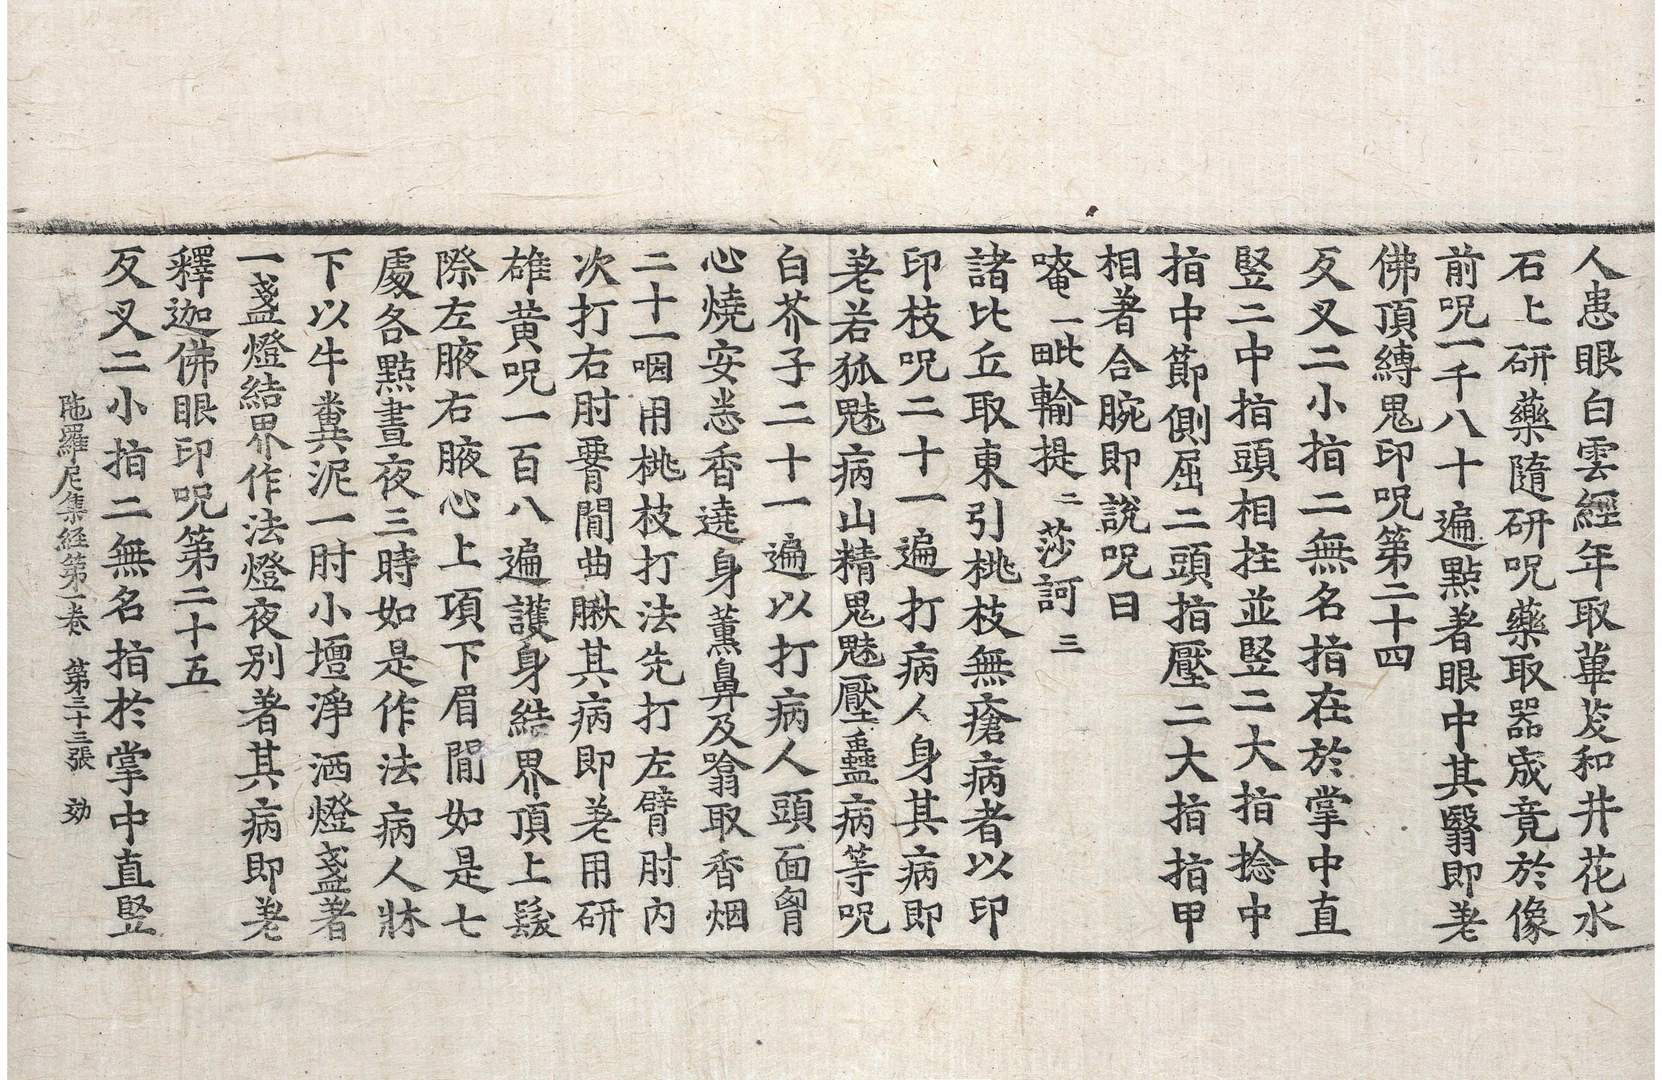 人患眼白雲經年取蓽茇和井花水
石上研藥隨研呪藥取器成竟於像
前呪一千八十遍點著眼中其翳即差
佛頂縛鬼印呪第二十四
反叉二小指二無名指在於掌中直
竪二中指頭相拄並竪二大指捻中
指中節側屈二頭指壓二大指指甲
相著合腕即說呪曰
唵一毗輪提二莎訶三
諸比丘取東引桃枝無瘡病者以印
印枝呪二十一遍打病人身其病即
差若狐魅病山精鬼魅壓蠱病等呪
白芥子二十一遍以打病人頭面胷
心燒安悉香遶身薰鼻及噏取香烟
二十一咽用桃枝打法先打左臂肘內
次打右肘䏶間曲䐐其病即差用研
雄黃呪一百八遍護身結界頂上髮
際左腋右腋心上項下眉間如是七
處各點晝夜三時如是作法病人牀
下以牛糞泥一肘小壇淨洒燈盞著
一盞燈結界作法燈夜別著其病即差
釋迦佛眼印呪第二十五
反叉二小指二無名指於掌中直竪
陁羅尼集經第一卷 第三十三張 効